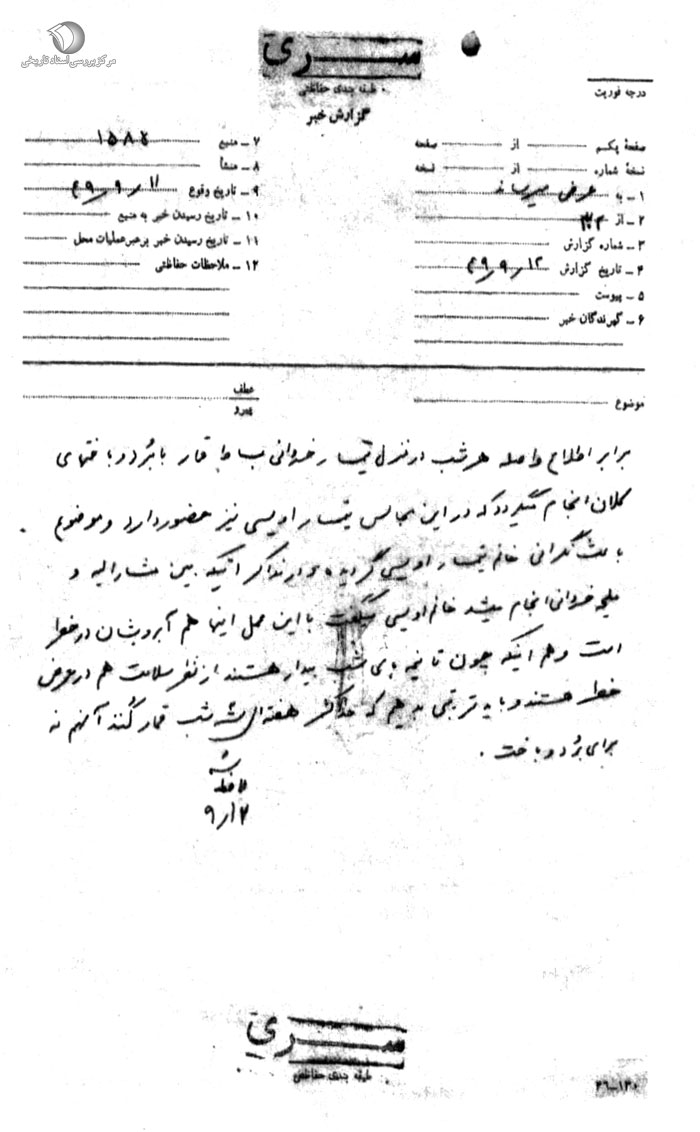 مرکز بررسی اسناد تاریخی
سری
طبقه بندی حفاظتی
گزارش خبر
درجه فوریت
صفحهٔ یکم از صفحه
نسخهٔ شماره از نسخه
۱ ــ به عرض میرساند
۲ ــ از ۳۲۲
۳ ــ شماره گزارش
۴ ــ تاریخ گزارش ۴۹٫۹٫۱۲
۵ ــ پیوست
۶ ــ گیرندگان خبر
۷ ــ منبع
۸ ــ منشأ
۹ ــ تاریخ وقوع ۴۹٫۹٫۱۱
۱۰ ــ تاریخ رسیدن خبر به منبع
۱۱ ــ تاریخ رسیدن خبر برهبرعملیات محل
۱۲ ــ ملاحظات حفاظتی
موضوع
عطف
پیرو
برابر اطلاع واصله هر شب در منزل تیمسار خسروانی بساط قمار با برد و باختهای
کلان انجام میگردد که در این مجالس تیمسار اویسی نیز حضور دارد و موضوع
باعث نگرانی خانم تیمسار اویسی گردیده و در مذاکراتیکه بین مشارالیه و
ملیحه خسروانی انجام میشد خانم اویسی میگفت با این عمل اینها هم آبرویشان در خطر
است و هم اینکه چون تا نیمه های شب بیدار هستند از نظر سلامت هم در معرض
خطر هستند و باید ترتیبی بدهیم که حداکثر هفته ای سه شب قمار کنند آنهم نه
برای برد و باخت .
ملاحظه شد
۹٫۱۲
سری
طبقه بندی حفاظتی
۳۶-۱۳۰